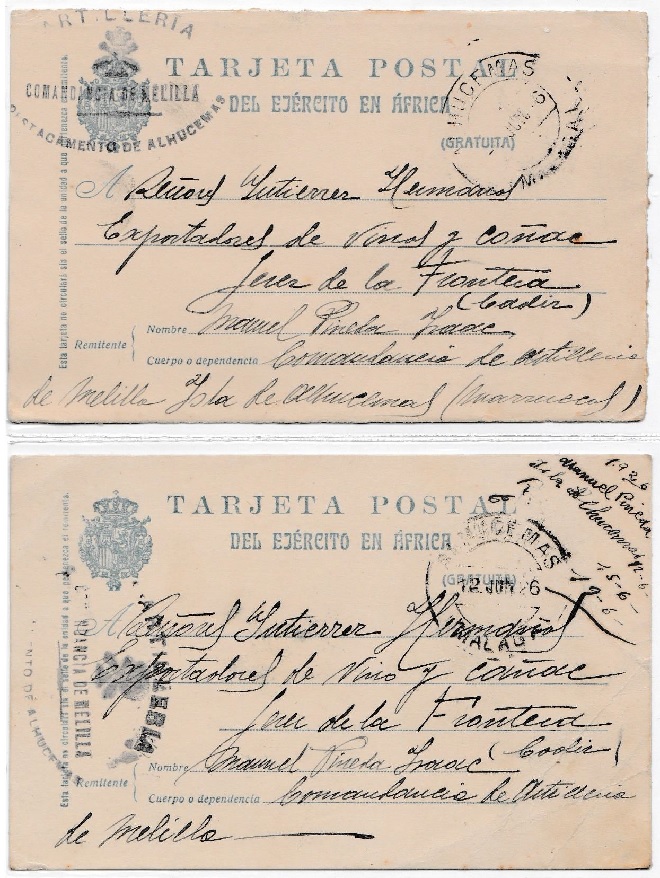 ARTILLERIA
COMANDANCIA DE MELILLA
DESTACAMENTO DE ALHUCEMAS
TARJETA POSTAL
DEL EJÉRCITO EN ÁFRICA
(GRATUITA)
ALHUCEMAS
MALAGA
Esta tarjeta no circulará sin el sello de la unidad a que pertenezca el remitente.
A Señores Gutierrez Hermanos
Exportadores de Vinos y Coñac
Jerez de la Frontera
(Cadiz)
Remitente
Nombre Manuel Pineda Izaac
Cuerpo o dependencia Comandancia de Artilleria
de Melilla Isla de Alhucemas (Marruecos)
1926
Manuel Pineda
TARJETA POSTAL
DEL EJÉRCITO EN ÁFRICA
(GRATUITA)
ALHUCEMAS
12 JUN 26
MALAGA
12-6-
15-6-
19-6-
Esta tarjeta no circulará sin el sello de la unidad a que pertenezca el remitente.
ARTILLERIA
COMANDANCIA DE MELILLA
DE ALHUCEMAS
A Señores Gutierrez Hermanos
Exportadores de Vino y Coñac
Jerez de la Frontera
(Cadiz)
Remitente
Nombre Manuel Pineda Izaac
Cuerpo o dependencia Comandancia de Artilleria
de Melilla